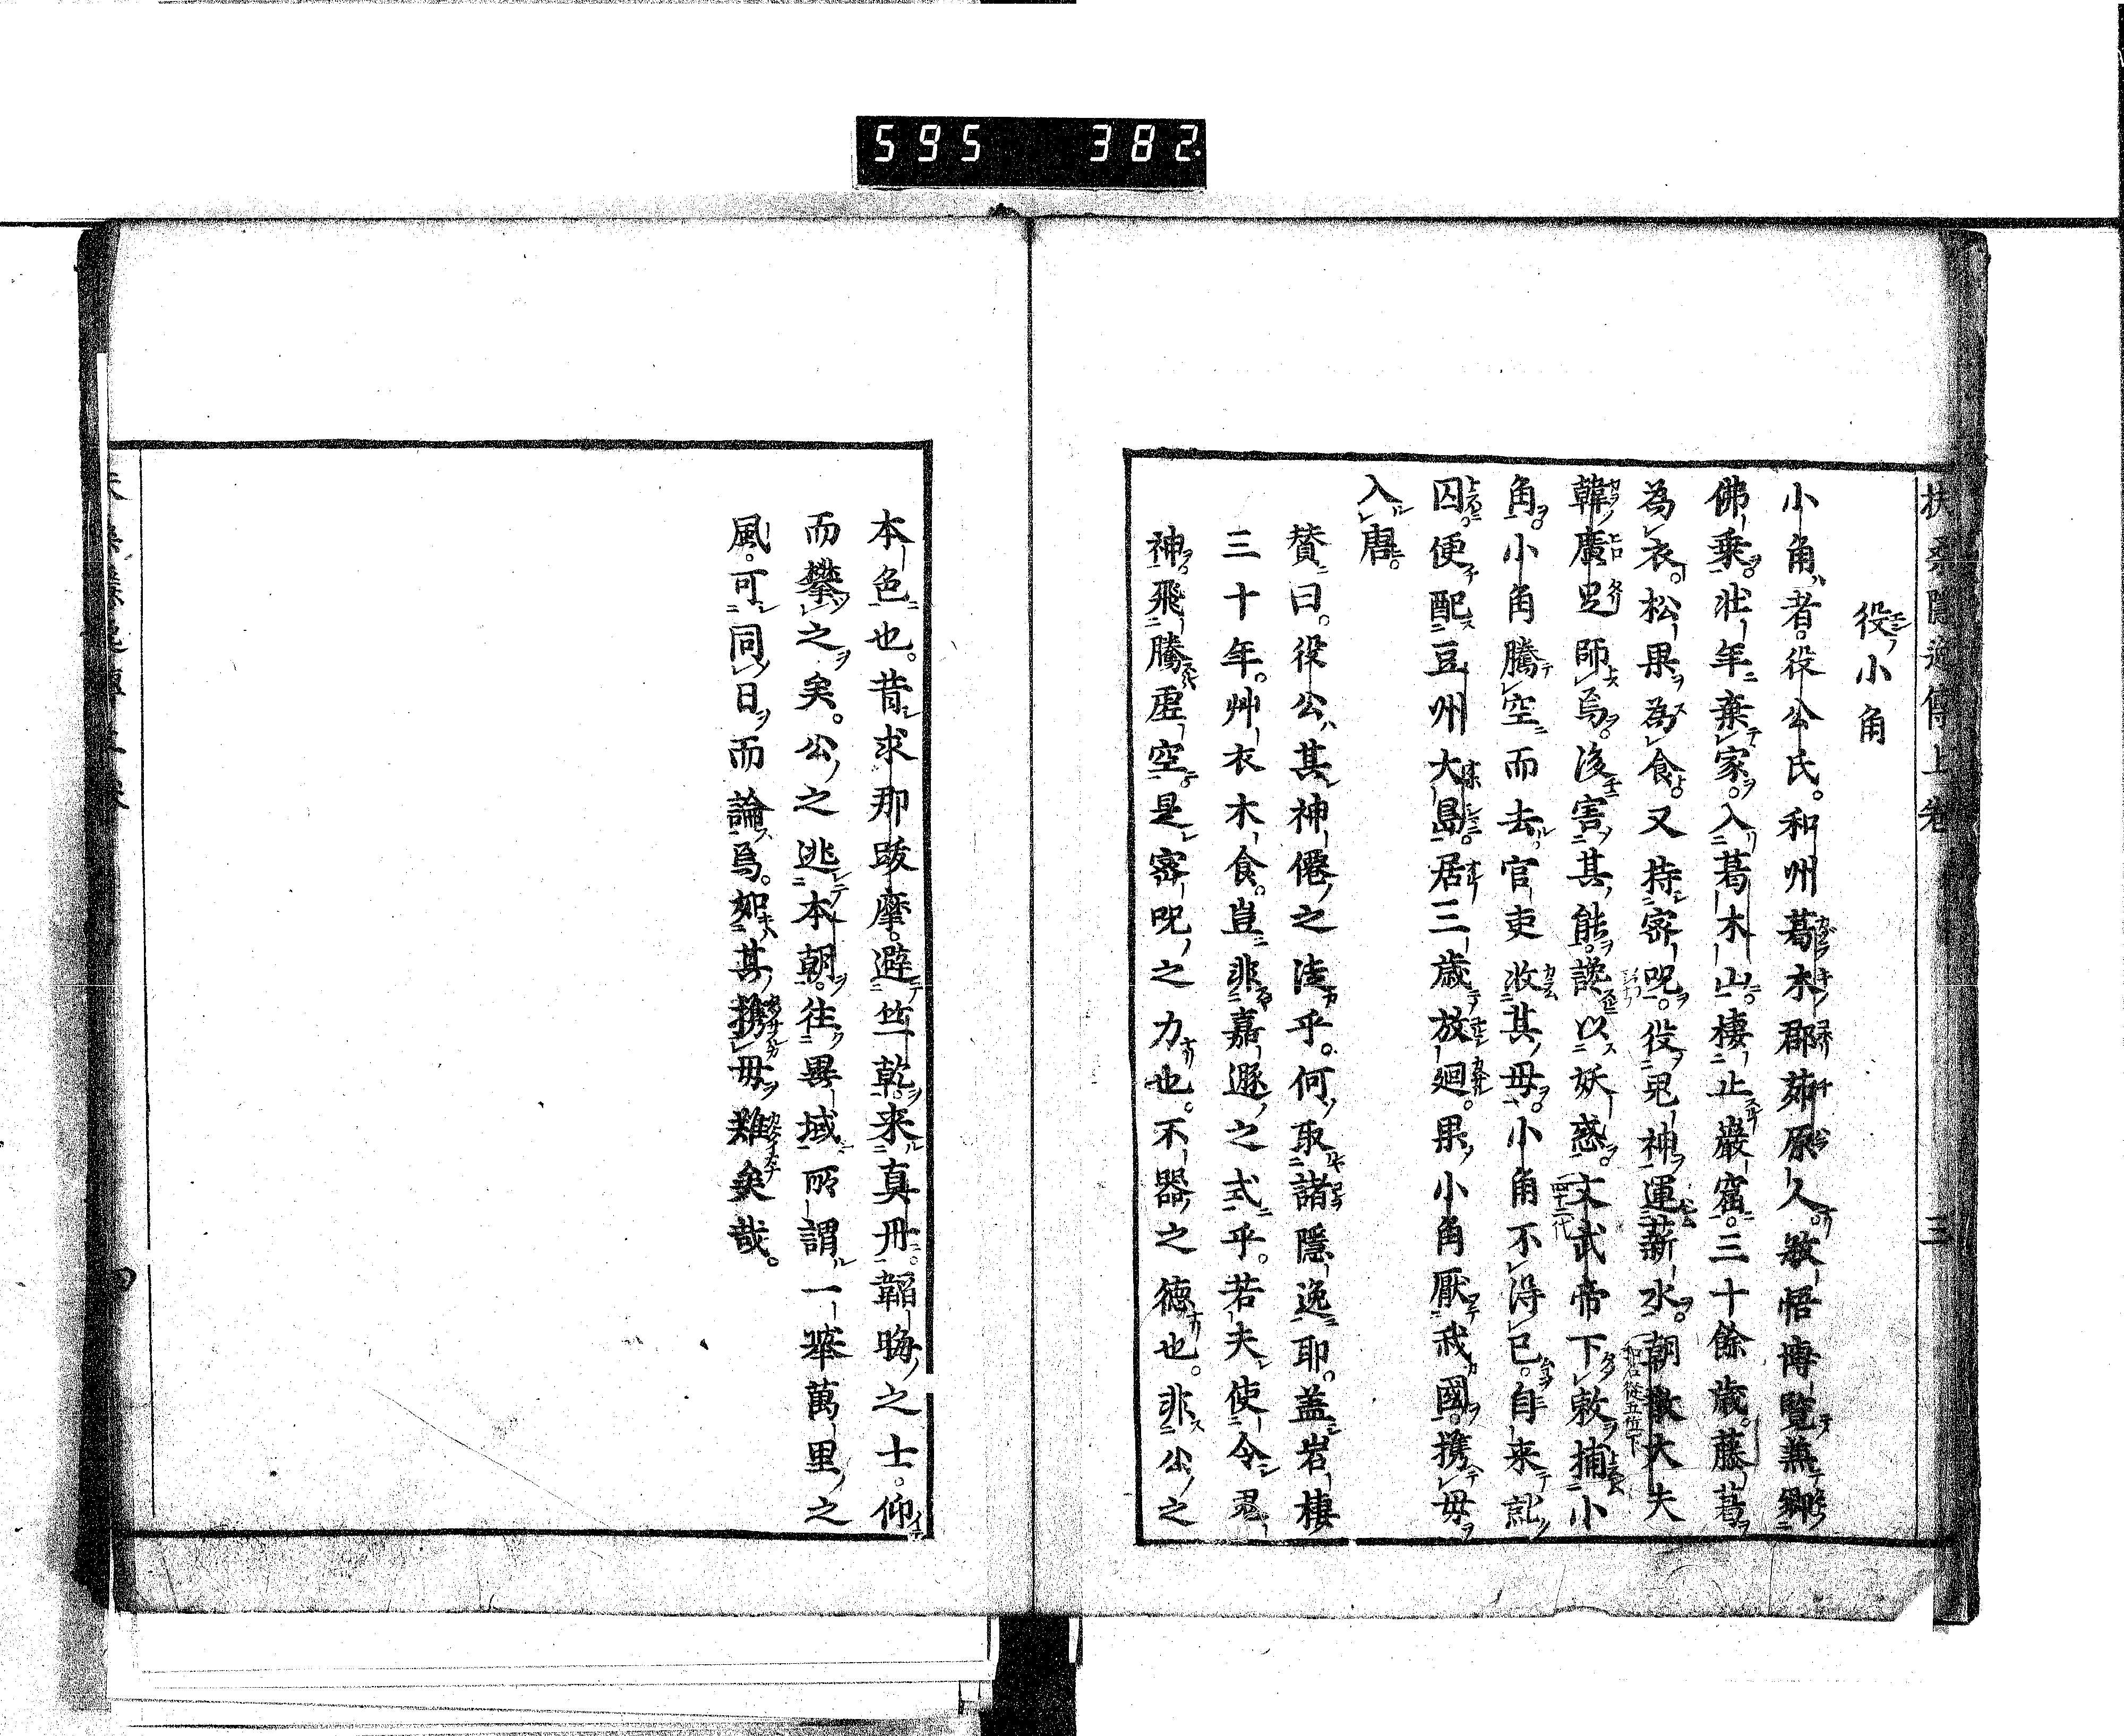 595 382
扶桑隱逸傳上卷 三
役小角
小角者。役公氏。和州葛木郡茆原人。敏悟博覽兼郷
佛乗。壮年棄家。入葛木山。棲止巖窟。三十餘歳。藤葛
為衣。松果為食。又持密呪。役鬼神運薪水。朝散大夫
韓廣足師焉。後害其能。讒以妖惑。文武帝下敕捕小
角。小角騰空而去。官吏收其母。小角不得已。自来就
囚。便配豆州大島。居三歳放廻。果小角厭我國。携母
入唐。
賛曰。役公其神僊之法乎。何取諸隱逸耶。蓋岩棲
三十年。艸衣木食。豈非嘉遯之式乎。若夫使令鬼
神飛騰虚空。是密呪之力也。不器之徳也。非公之
本色也。昔求那跋摩。避竺乾。来真丹。韜晦之士。仰
而攀之矣。公之逃本朝。往異域。所謂一擧萬里之
風。可同日而論焉。如其携母難矣哉。